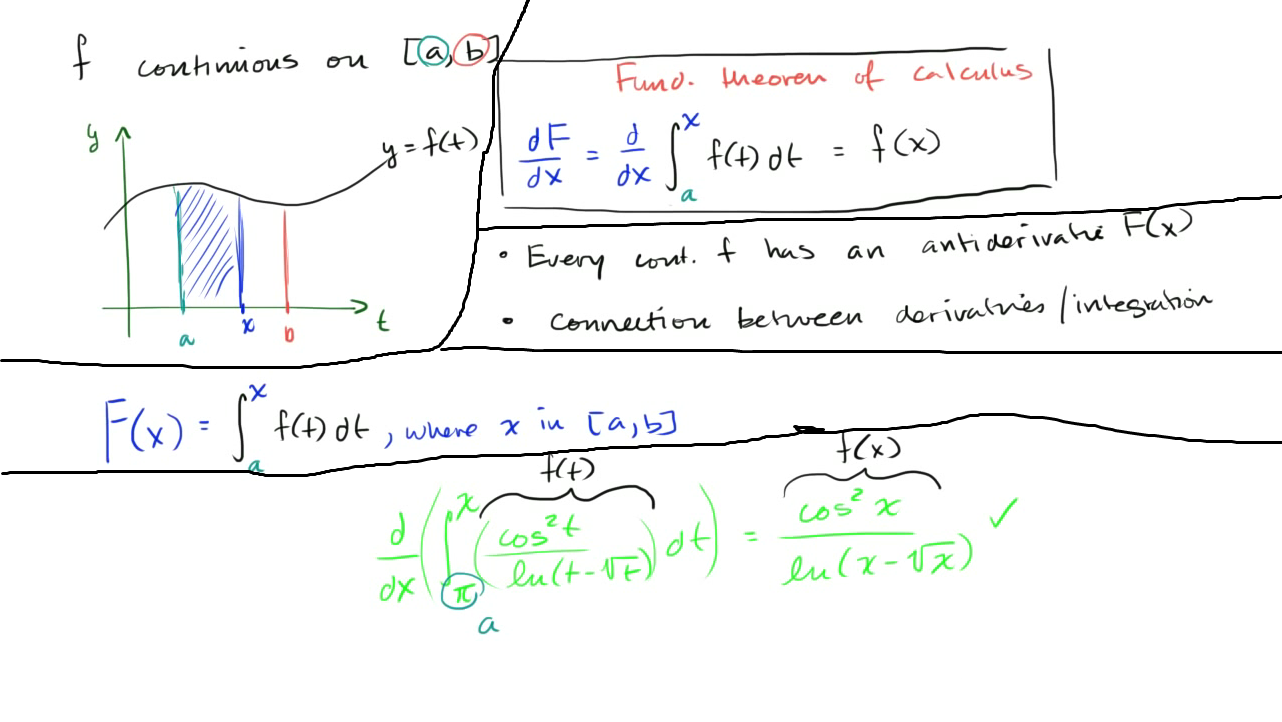 f continuous on [a, b]
y
y = f(t)
a x b t
Fund. theorem of calculus
dF/dx = d/dx ∫_a^x f(t) dt = f(x)
• Every cont. f has an antiderivative F(x)
• Connection between derivatives/integration
F(x) = ∫_a^x f(t) dt, where x in [a, b]
f(t) f(x)
d/dx (∫_π^x (cos²t / ln(t-√t)) dt) = cos²x / ln(x-√x) ✓
a